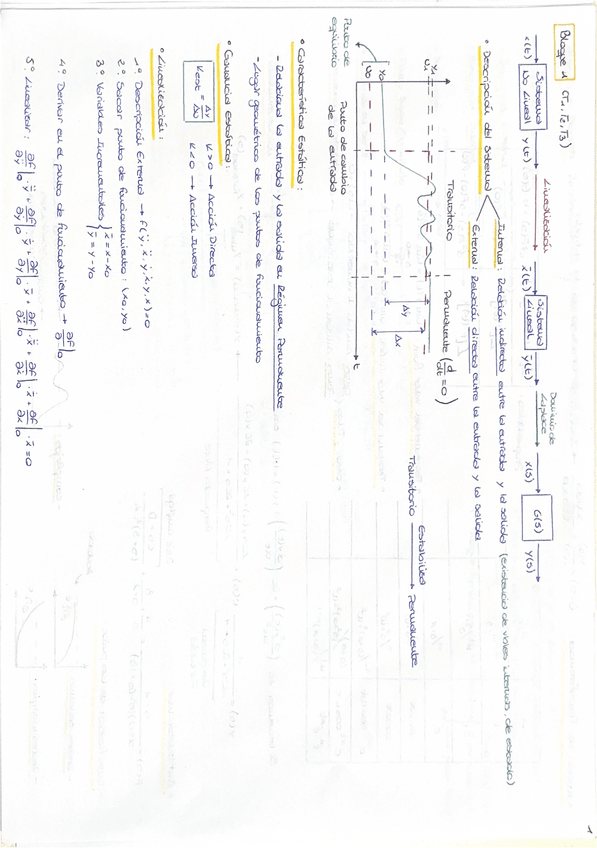 Bloque 1 (T1, T2, T3)
x(t) → Sistema No Lineal → y(t) Linealización x̃(t) → Sistema Lineal → ỹ(t) Dominio de Laplace X(s) → G(s) → Y(s)
• Descripción del Sistema
Interna: Relación indirecta entre la entrada y la salida (existencia de vables internas, de estado)
Externa: Relación directa entre la entrada y la salida
Transitorio
Permanente (d/dt = 0)
Transitorio Estabilidad → Permanente
y1
u1
y0
u0
Δy
Δx
t
Punto de equilibrio
Punto de cambio de la entrada
• Característica Estática:
- Relaciona la entrada y la salida en Régimen Permanente
- Lugar geométrico de los puntos de funcionamiento
• Ganancia Estática:
Kest = Δy/Δu
K > 0 → Acción Directa
K < 0 → Acción Inversa
• Linealización:
1º Descripción Externa → f(ÿ, ẍ, ẏ, ẋ, y, x) = 0
2º Sacar punto de funcionamiento: (x0, y0)
3º Variables Incrementales { x̃ = x - x0
ỹ = y - y0
4º Derivar en el punto de funcionamiento → ∂f/∂ |0
5º Linealizar: